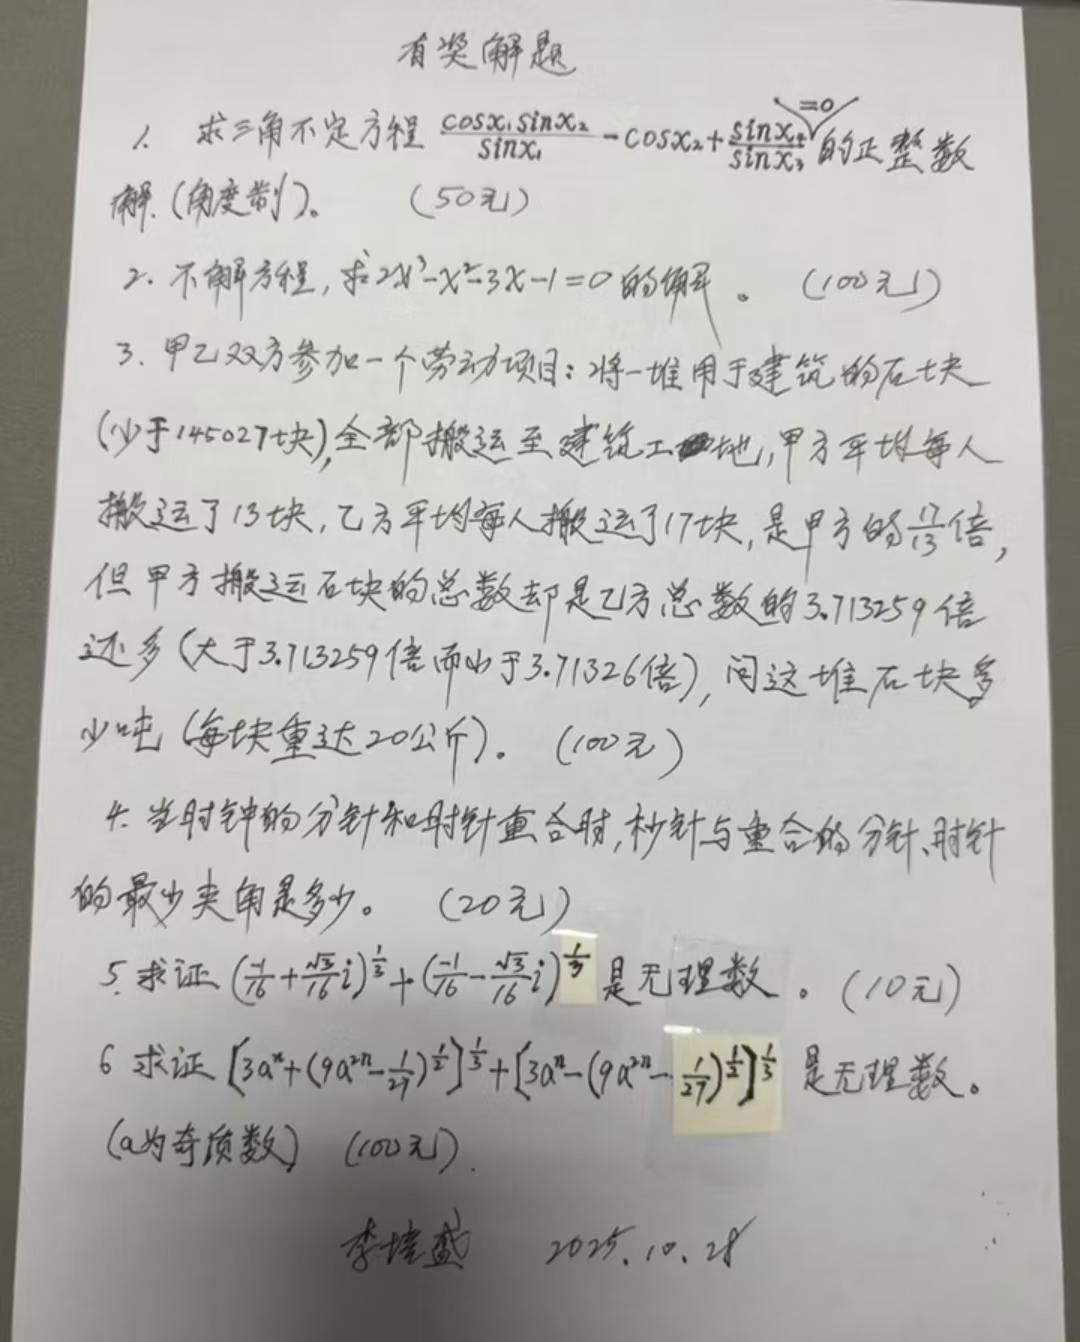 有奖解题
1. 求三角不定方程 cosx₁sinx₂/sinx₁ - cosx₂ + sinx₄/sinx₃ =0 的正整数
解.(角度制)。 (50元)
2. 不解方程, 求2x³-x²-3x-1=0的解。 (100元)
3. 甲乙双方参加一个劳动项目:将一堆用于建筑的石块
(少于145027块),全部搬运至建筑工地,甲方平均每人
搬运了13块,乙方平均每人搬运了17块,是甲方的17/13倍,
但甲方搬运石块的总数却是乙方总数的3.713259倍
还多(大于3.713259倍而小于3.71326倍),问这堆石块多
少吨(每块重达20公斤)。 (100元)
4. 当时钟的分针和时针重合时,秒针与重合的分针、时针
的最少夹角是多少。 (20元)
5. 求证 (-1/16+√3/16 i)^(1/3) + (-1/16-√3/16 i)^(1/3) 是无理数。(10元)
6 求证 [3aⁿ+(9a²ⁿ-1/27)^(1/2)]^(1/3)+[3aⁿ-(9a²ⁿ-1/27)^(1/2)]^(1/3) 是无理数。
(a为奇质数) (100元).
2025.10.28